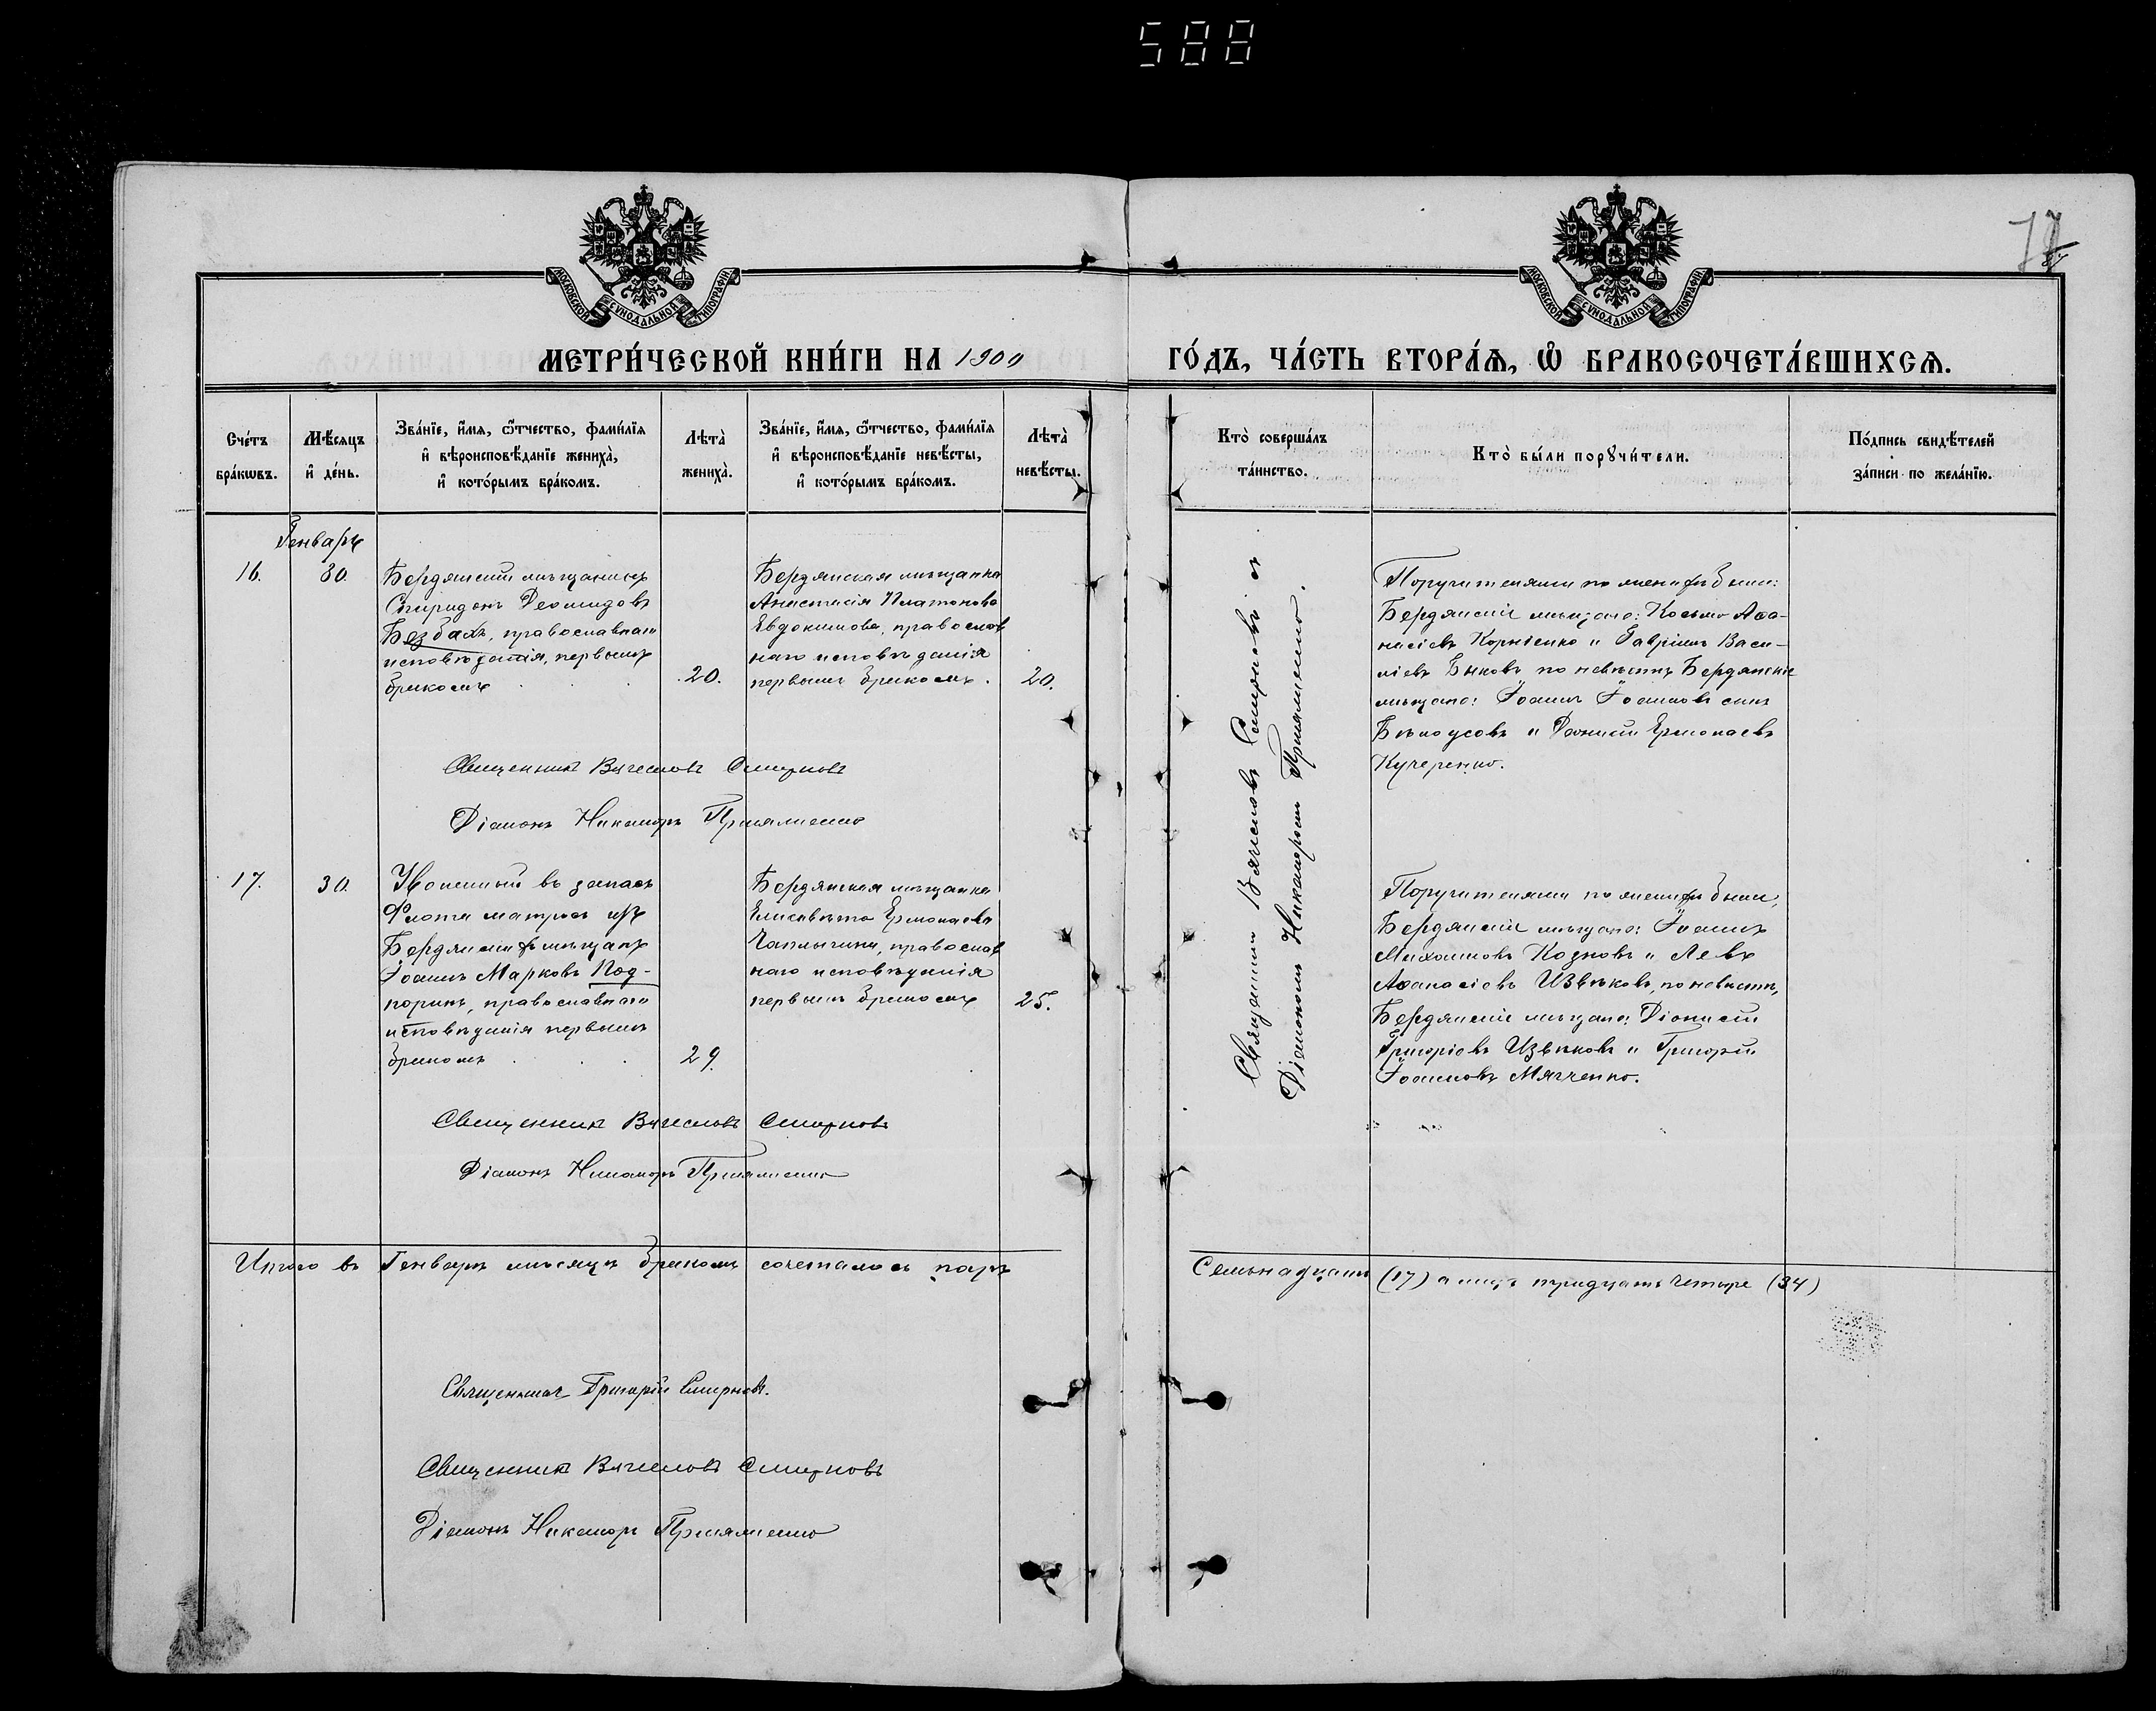 588
77
МОСКОВСКОЙ СѴНОДАЛЬНОЙ ТИПОГРАФІИ
МОСКОВСКОЙ СѴНОДАЛЬНОЙ ТИПОГРАФІИ
МЕТРИ́ЧЕСКОЙ КНИ́ГИ НА 1900
ГО́ДЪ, ЧА́СТЬ ВТОРА́Ѧ, Ѡ҆ БРАКОСОЧЕТА́ВШИХСѦ.
Сче́тъ
бра́кѡвъ.
Мѣ́сяцъ
и҆ де́нь.
Зва́нїе, и҆́мя, ѻ҆́тчество, фами́лїя
и҆ вѣроисповѣ́данїе жениха̀,
и҆ кото́рымъ бра́комъ.
Лѣта̀
жениха̀.
Зва́нїе, и҆́мя, ѻ҆́тчество, фами́лїя
и҆ вѣроисповѣ́данїе невѣ́сты,
и҆ кото́рымъ бра́комъ.
Лѣта̀
невѣ́сты.
Кто̀ соверша́лъ
та́инство.
Кто̀ бы́ли порꙋчи́тели.
По́дпись свидѣ́телей
за́писи по жела́нїю.
Генварь
16.
30.
Бердянскій мѣщанинъ
Спиридонъ Деомидовъ
Безбахъ, православнаго
исповѣданія, первымъ
бракомъ
20.
Бердянская мѣщанка
Анастасія Платонова
Евдокимова, православ
наго исповѣданія
первымъ бракомъ.
20.
Священникъ Вячеславъ Смирновъ
Діаконъ Никаноръ
Священникъ Вячеславъ Смирновъ съ
Діакономъ Никаноромъ
Поручителями по женихѣ были:
Бердянскіе мѣщане: Косьма Аѳа-
насіевъ Корніенко и Гавріилъ Васи-
ліевъ Быковъ по невѣстѣ Бердянскіе
мѣщане: Іоаннъ Іоанновъ сынъ
Бѣлоусовъ и Діонисій Ермолаевъ
Кучеренко.
17.
30.
Уволенный въ запасъ
Флота матросъ изъ
Бердянскихъ мѣщанъ
Іоаннъ Марковъ Под-
поринъ, православнаго
исповѣданія первымъ
бракомъ
29.
Бердянская мѣщанка
Елисавета Ермолаева
Чаплыгина, православ
наго исповѣданія
первымъ бракомъ
25.
Поручителями по женихѣ были,
Бердянскіе мѣщане: Іоаннъ
Михаиловъ Козловъ и Левъ
Аѳанасіевъ Извѣковъ, по невѣстѣ,
Бердянскіе мѣщане: Діонисій
Григоріевъ Извѣковъ и Григорій
Іоанновъ Мягченко.
Священникъ Вячеславъ Смирновъ
Діаконъ Никаноръ
Итого въ Генварѣ мѣсяцѣ бракомъ сочеталось паръ
Семьнадцать (17) а лицъ тридцать четыре (34)
Священникъ Григорій Смирновъ.
Священникъ Вячеславъ Смирновъ
Діаконъ Никаноръ